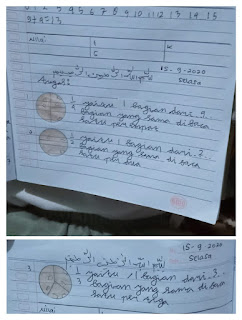 1 2 3 4 5 6 7 8 9 10 11 12 13 14 15
9+4=13
Nilai
15-9-2020
بسم الله الرحمن الرحيم
Selasa
1. 1/4 yaitu 1 bagian dari 4
bagian yang sama di baca
satu per empat
2. 1/2 yaitu 1 bagian dari 2
bagian yang sama di baca
satu per dua
15-9 2020
بسم الله الرحمن الرحيم
Selasa
3. 1/3 yaitu 1 bagian dari 3
bagian yang sama di baca
satu per tiga